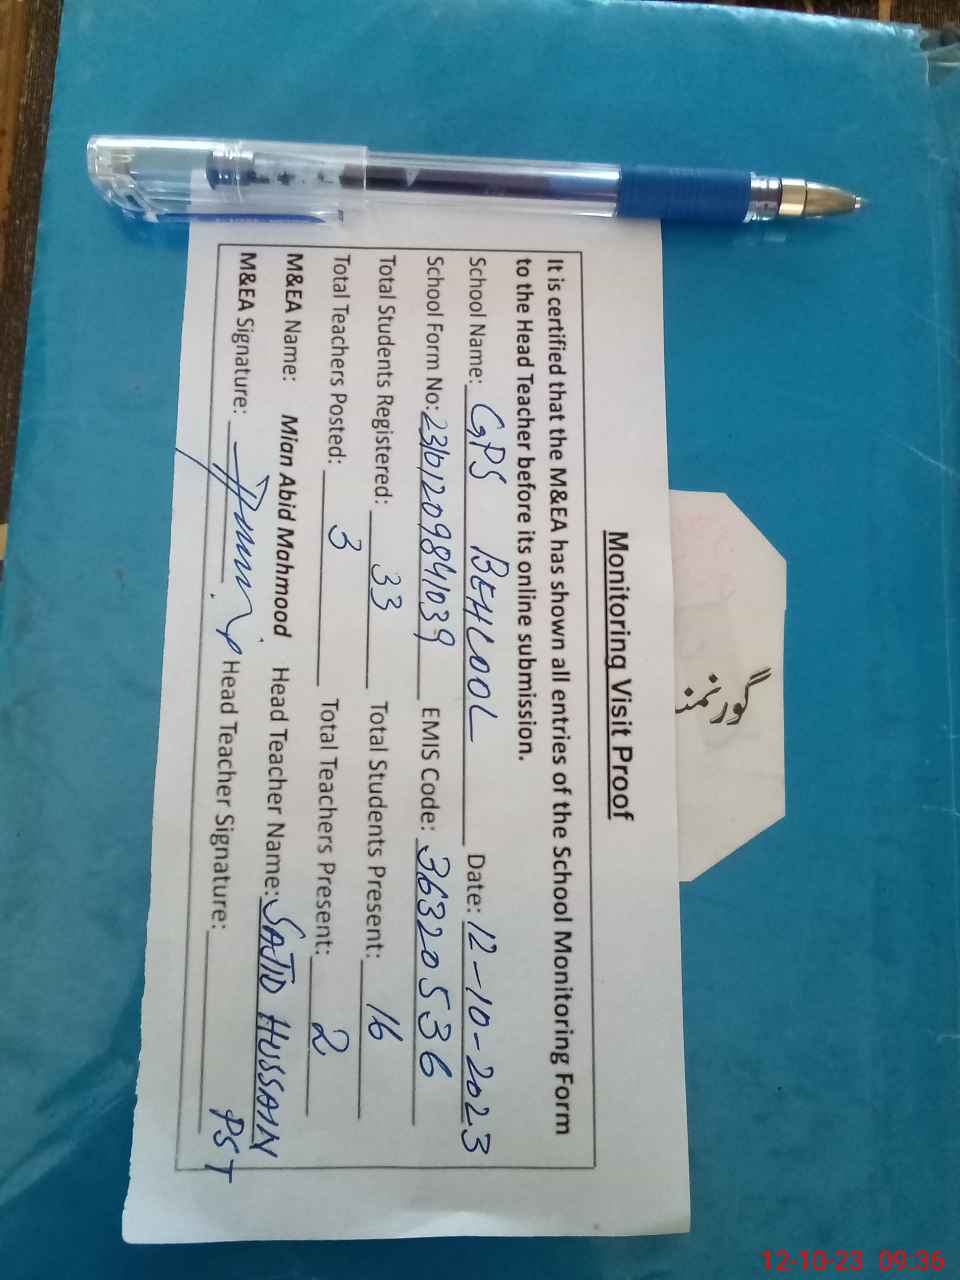 گورنمنٹ
Monitoring Visit Proof
It is certified that the M&EA has shown all entries of the School Monitoring Form
to the Head Teacher before its online submission.
School Name: GPS BEHLOOL Date: 12-10-2023
School Form No: 23101209841039 EMIS Code: 36320536
Total Students Registered: 33 Total Students Present: 16
Total Teachers Posted: 3 Total Teachers Present: 2
M&EA Name: Mian Abid Mahmood Head Teacher Name: SAJID HUSSAIN
PST
M&EA Signature: Head Teacher Signature:
12-10-23 09:36